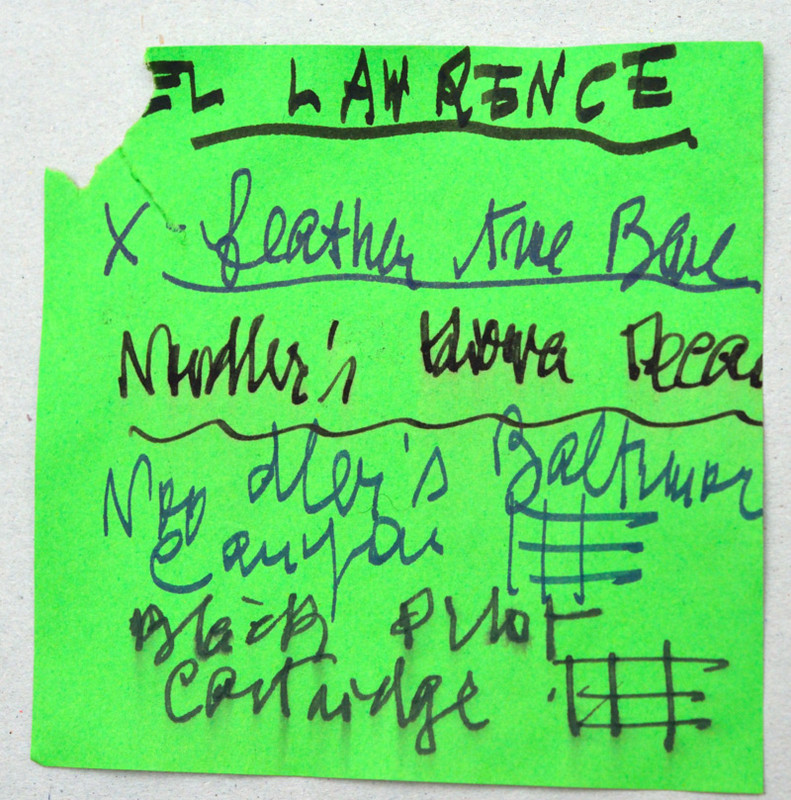 EL LAWRENCE
X feather true Blue
Noodler's Kiowa Pecan
Noodler's Baltimor
Canyon
Black Pilot
Cartridge